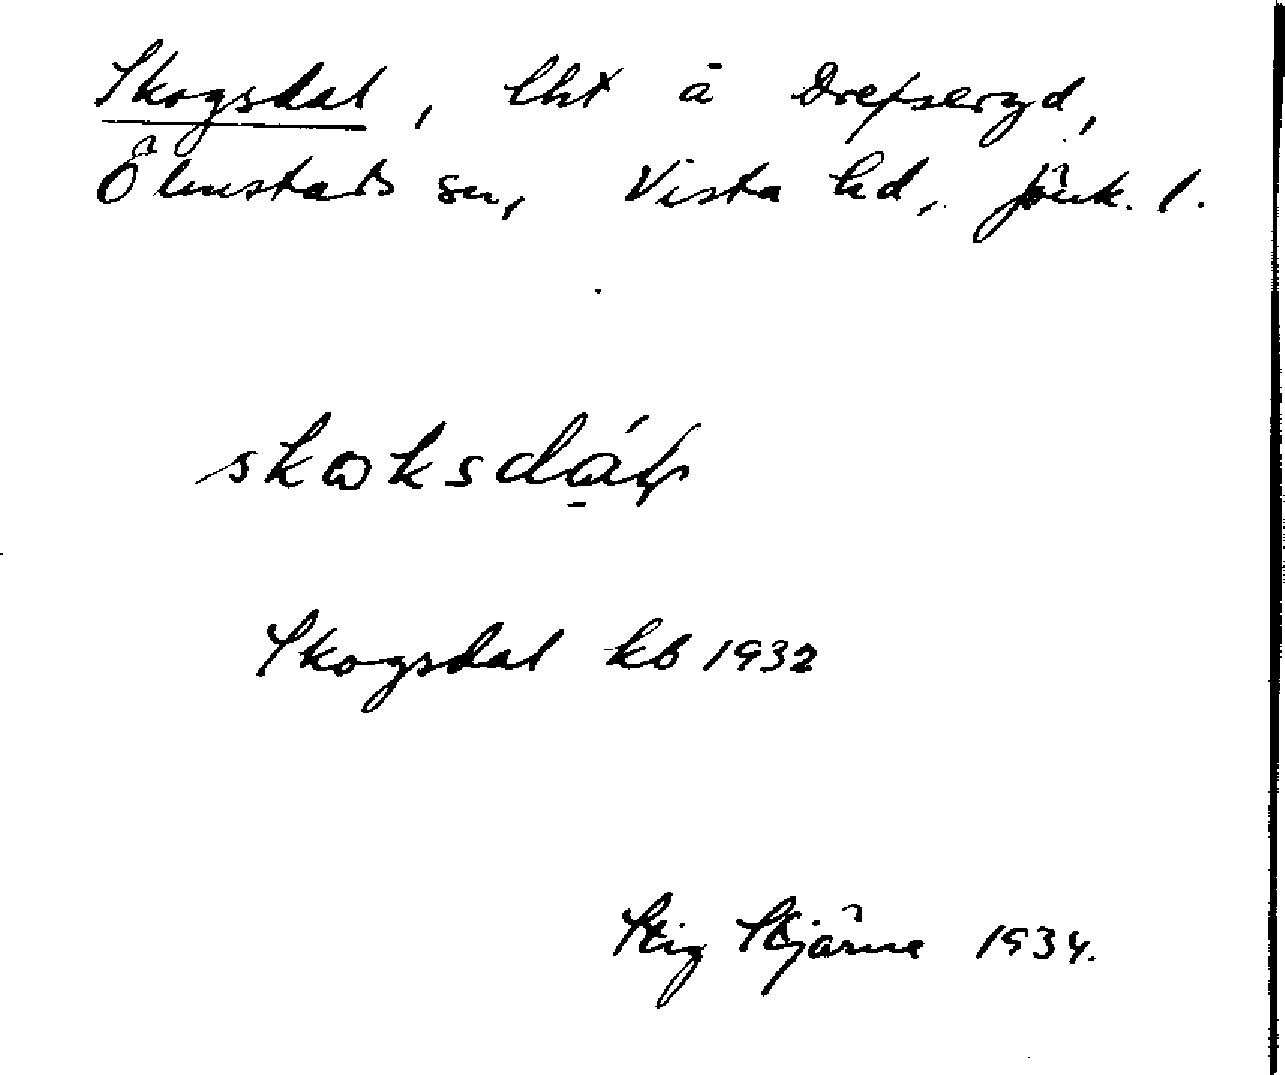 Skogsdal, lht å Drefseryd,
Ölmstads sn, Vista hd, Jönk. l.
skɷksdá̱ɫ
Skogsdal kb 1932
Stig Stjärne 1934.